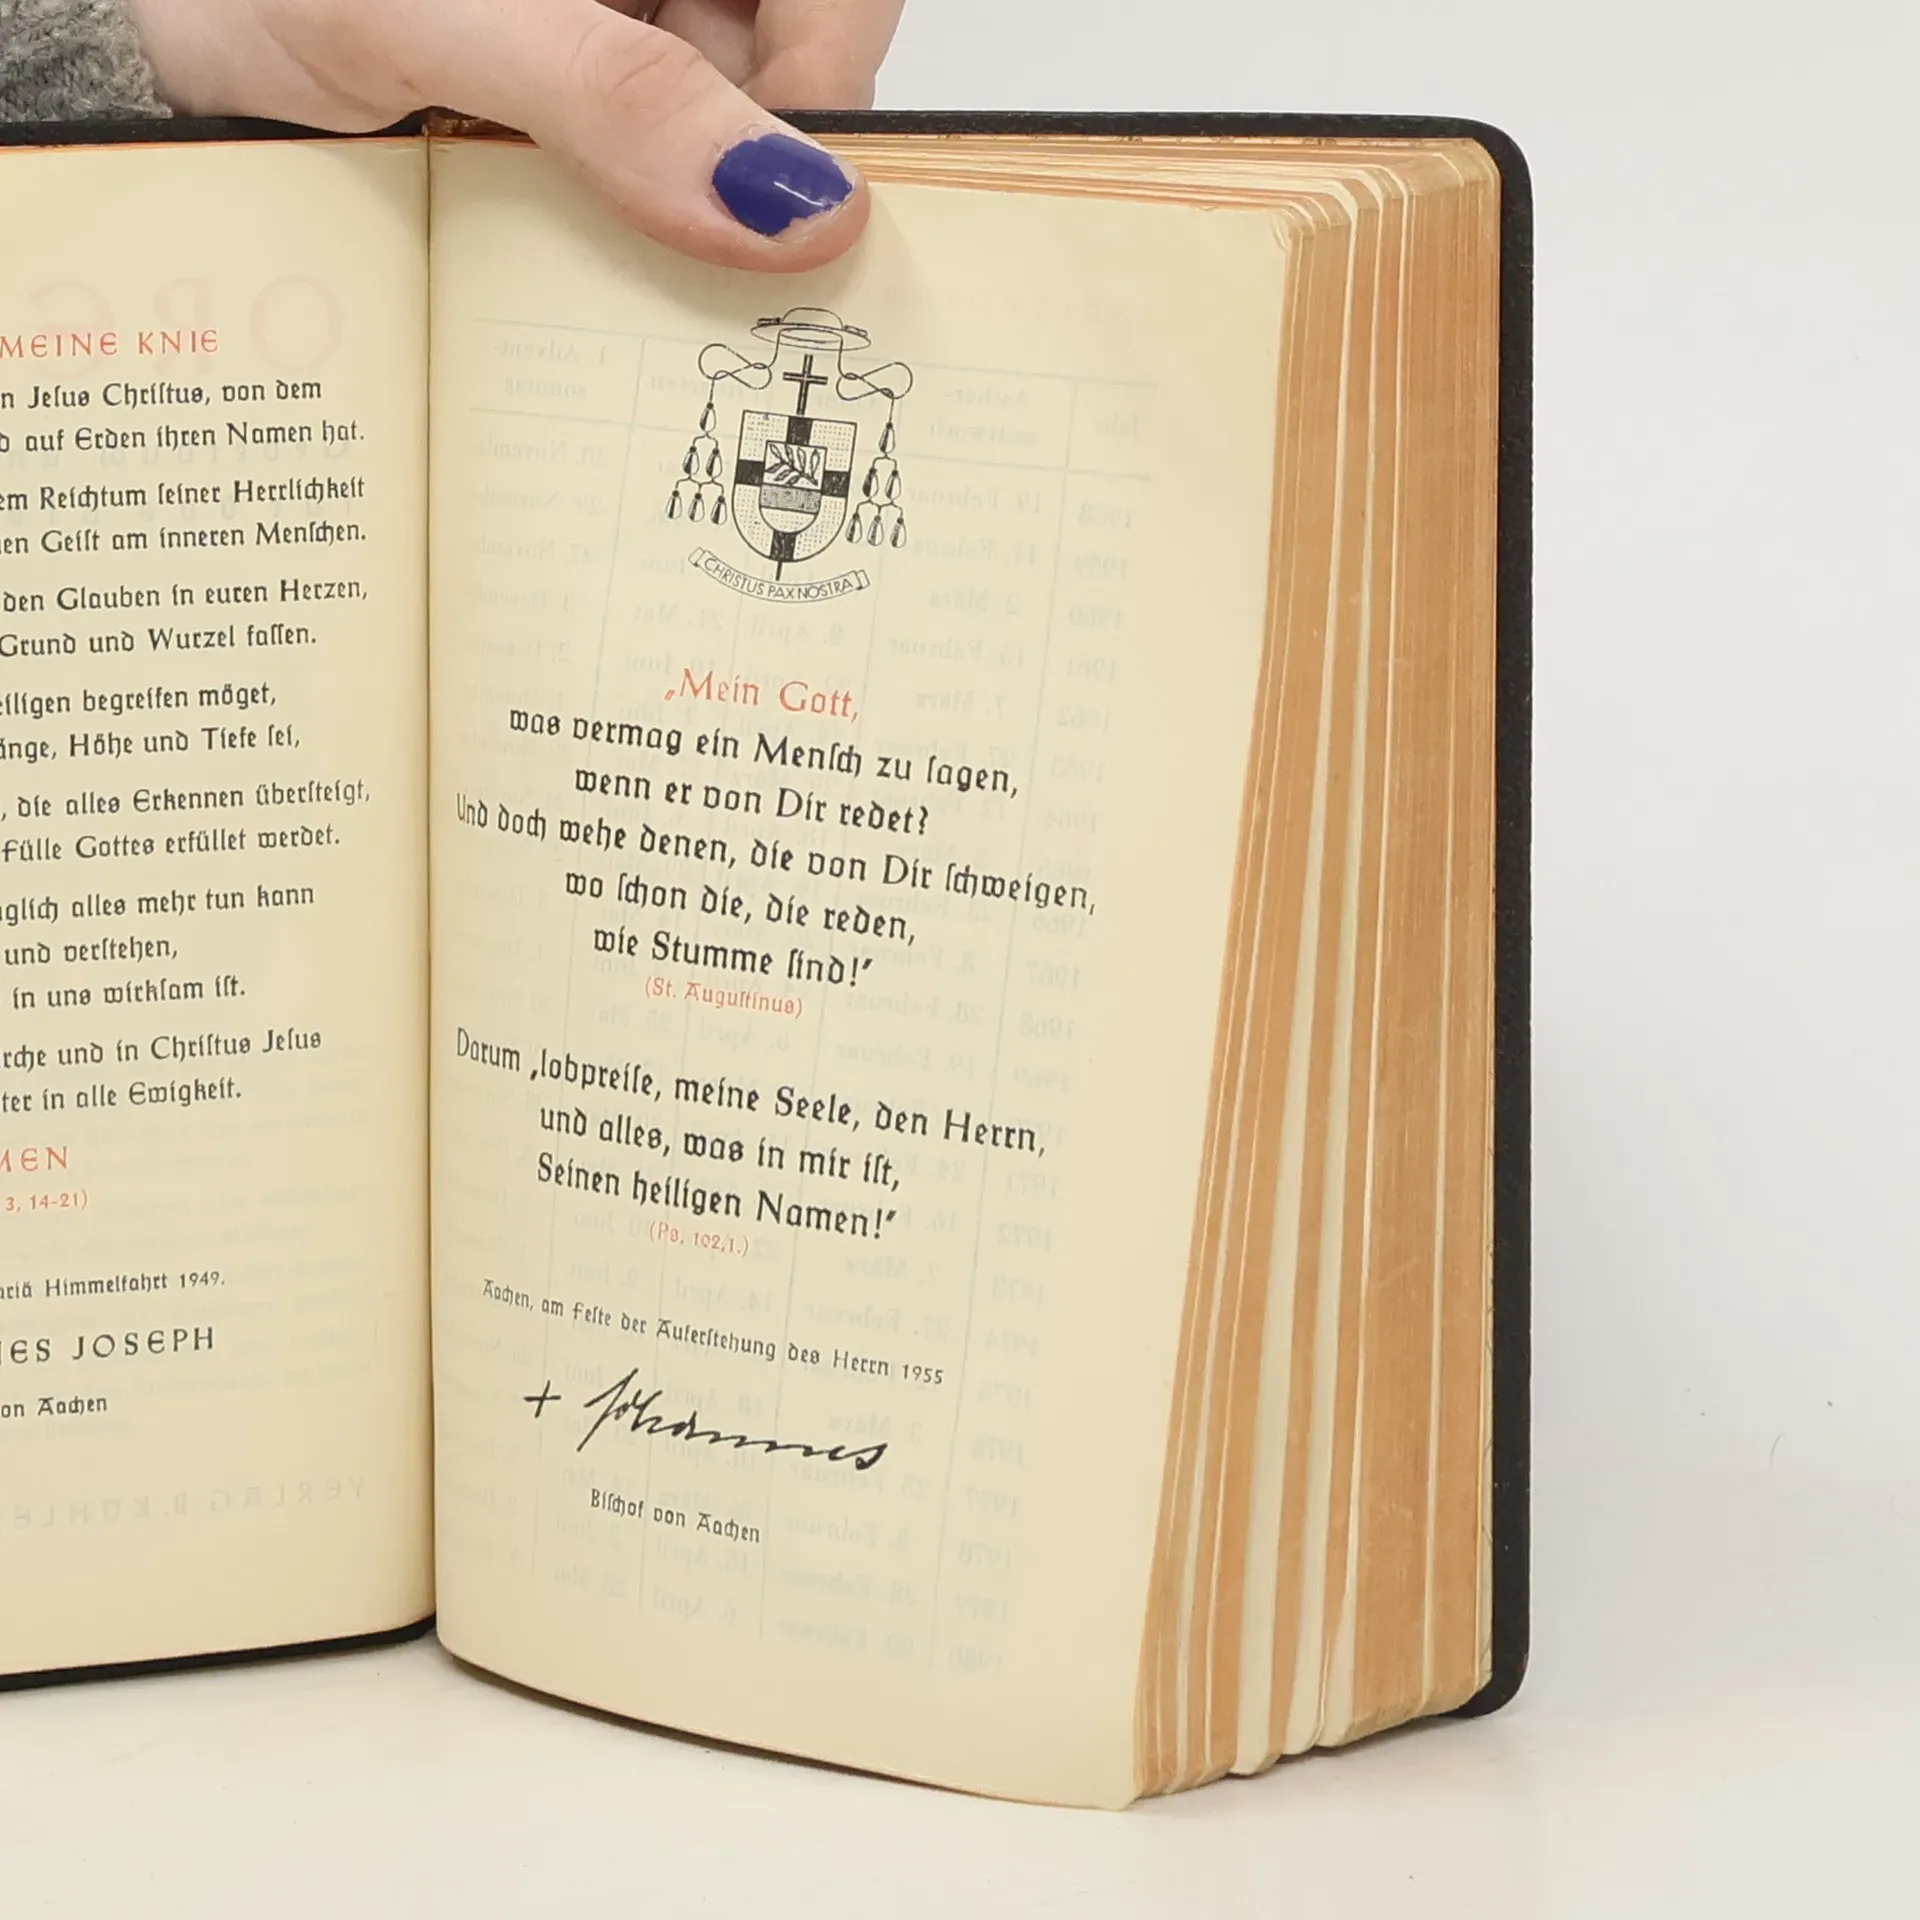 MEINE KNIE
Jeſus Chriſtus, von dem
auf Erden ihren Namen hat.
Reichtum ſeiner Herrlichkeit
Geiſt am inneren Menſchen.
den Glauben in euren Herzen,
Grund und Wurzel faſſen.
begreifen möget,
Höhe und Tiefe ſei,
, die alles Erkennen überſteigt,
Fülle Gottes erfüllet werdet.
alles mehr tun kann
und verſtehen,
in uns wirkſam iſt.
und in Chriſtus Jeſus
in alle Ewigkeit.
3, 14-21)
Himmelfahrt 1949.
JOSEPH
Aachen
CHRISTUS PAX NOSTRA
„Mein Gott,
was vermag ein Menſch zu ſagen,
wenn er von Dir redet?
Und doch wehe denen, die von Dir ſchweigen,
wo ſchon die, die reden,
wie Stumme ſind!"
(St. Auguſtinus)
Darum ‚lobpreiſe, meine Seele, den Herrn,
und alles, was in mir iſt,
Seinen heiligen Namen!"
(Ps. 102,1.)
Aachen, am Feſte der Auferſtehung des Herrn 1955
+ Johannes
Biſchof von Aachen